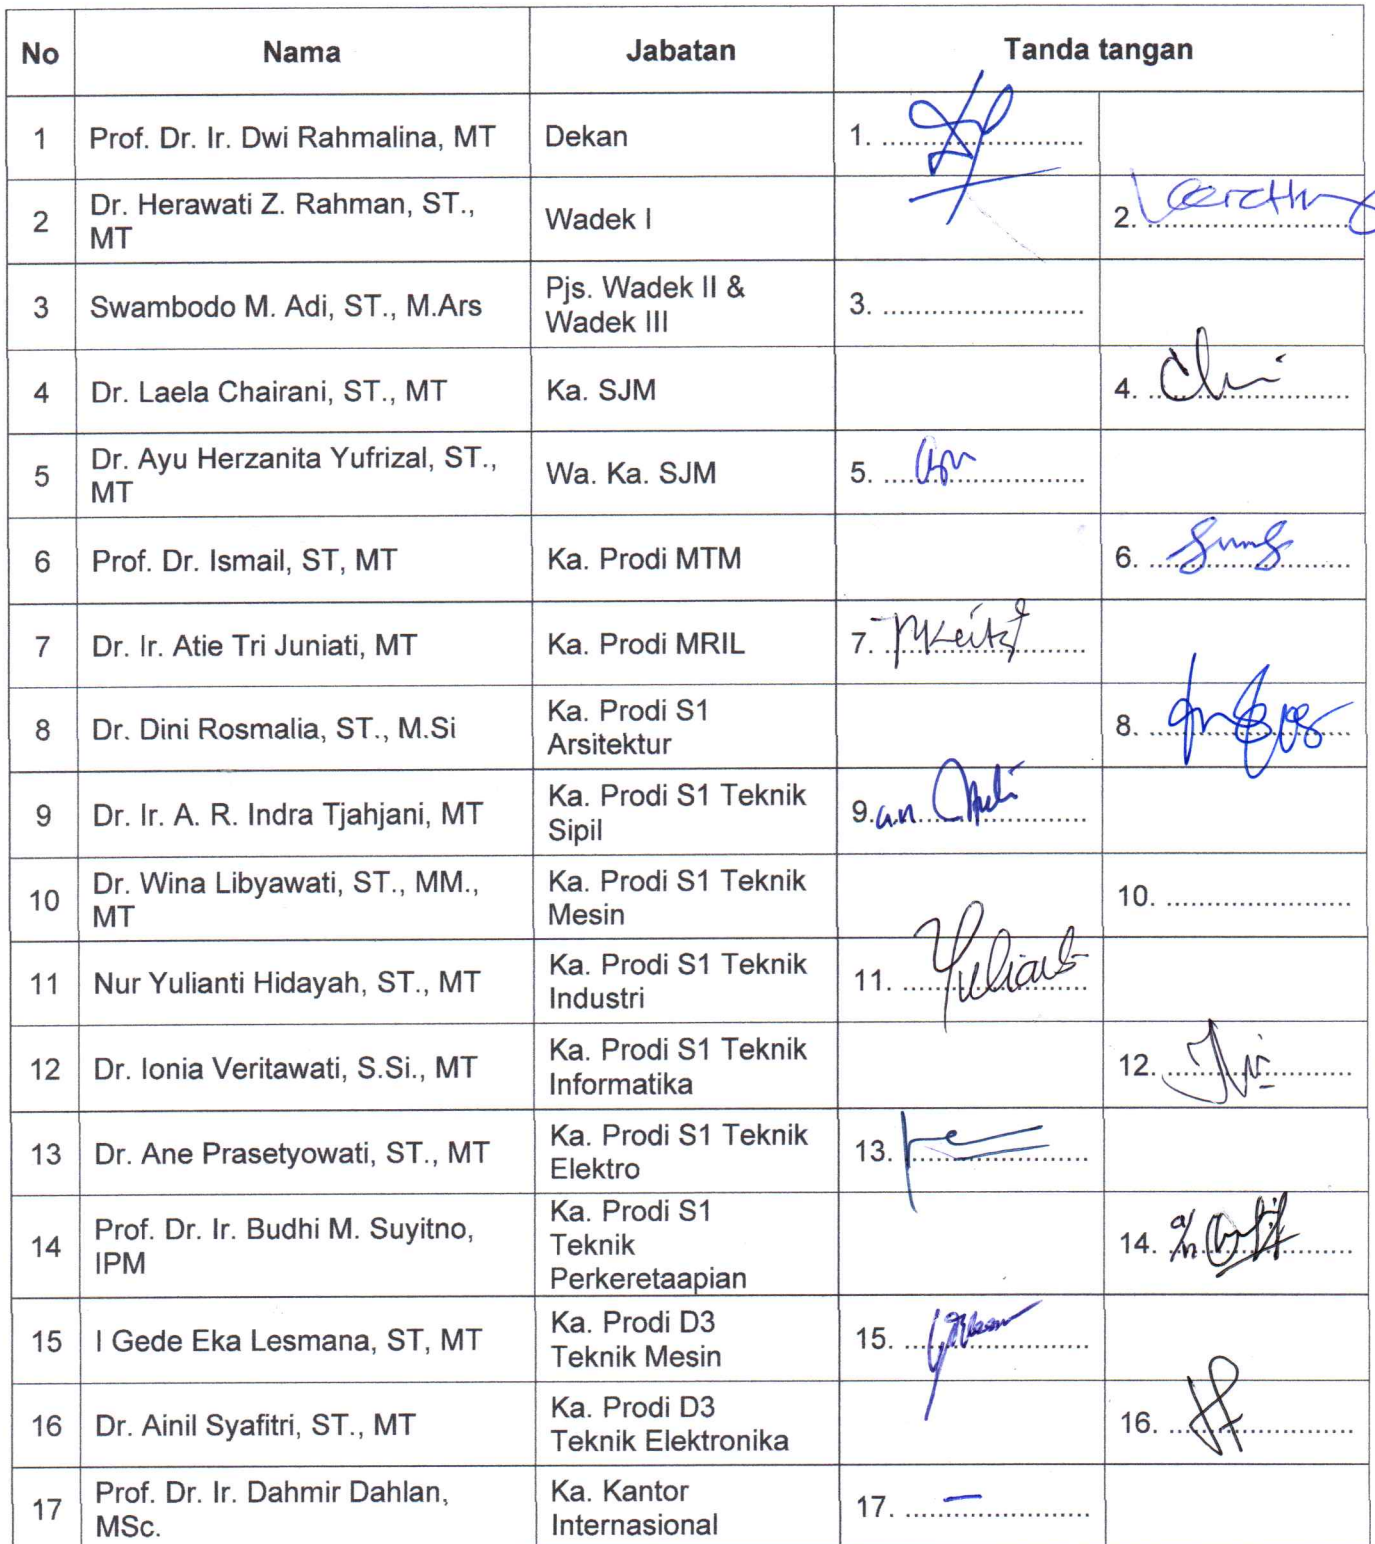 No Nama Jabatan Tanda tangan
1 Prof. Dr. Ir. Dwi Rahmalina, MT Dekan 1. ........................
2 Dr. Herawati Z. Rahman, ST., MT Wadek I 2. ........................
3 Swambodo M. Adi, ST., M.Ars Pjs. Wadek II & Wadek III 3. ........................
4 Dr. Laela Chairani, ST., MT Ka. SJM 4. ........................
5 Dr. Ayu Herzanita Yufrizal, ST., MT Wa. Ka. SJM 5. ........................
6 Prof. Dr. Ismail, ST, MT Ka. Prodi MTM 6. ........................
7 Dr. Ir. Atie Tri Juniati, MT Ka. Prodi MRIL 7. ........................
8 Dr. Dini Rosmalia, ST., M.Si Ka. Prodi S1 Arsitektur 8. ........................
9 Dr. Ir. A. R. Indra Tjahjani, MT Ka. Prodi S1 Teknik Sipil 9. a.n ........................
10 Dr. Wina Libyawati, ST., MM., MT Ka. Prodi S1 Teknik Mesin 10. ......................
11 Nur Yulianti Hidayah, ST., MT Ka. Prodi S1 Teknik Industri 11. ......................
12 Dr. Ionia Veritawati, S.Si., MT Ka. Prodi S1 Teknik Informatika 12. ......................
13 Dr. Ane Prasetyowati, ST., MT Ka. Prodi S1 Teknik Elektro 13. ......................
14 Prof. Dr. Ir. Budhi M. Suyitno, IPM Ka. Prodi S1 Teknik Perkeretaapian 14. a/n ......................
15 I Gede Eka Lesmana, ST, MT Ka. Prodi D3 Teknik Mesin 15. ......................
16 Dr. Ainil Syafitri, ST., MT Ka. Prodi D3 Teknik Elektronika 16. ......................
17 Prof. Dr. Ir. Dahmir Dahlan, MSc. Ka. Kantor Internasional 17. ......................